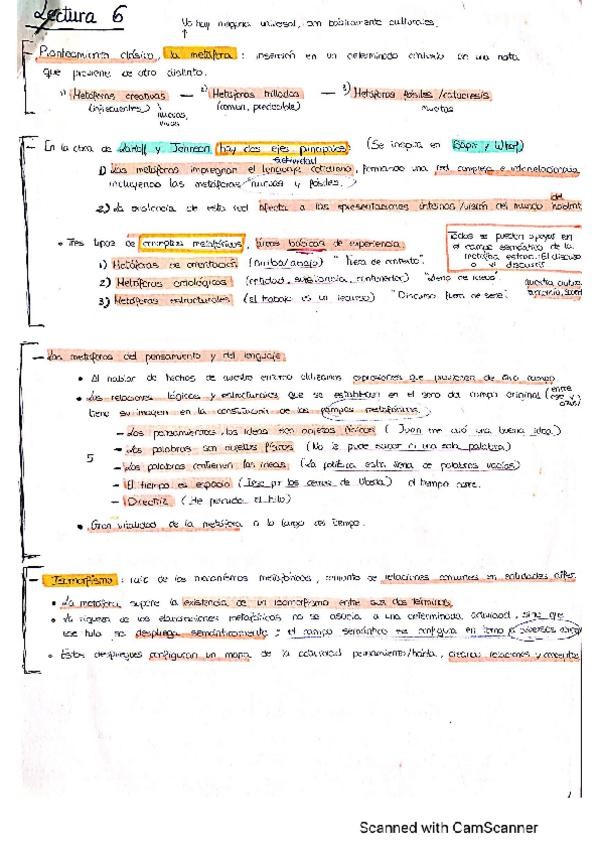 Lectura 6
No hay ninguna universal, son básicamente culturales.
Planteamiento clásico, la metáfora: inserción en un determinado contexto de una nota
que proviene de otro distinto.
1) Metáforas creativas — 2) Metáforas trilladas — 3) Metáforas fósiles / catacresis
(infrecuentes) (común, predecible) muertas
nuevas, vivas
— En la obra de Lakoff y Johnson hay dos ejes principales: (Se inspira en Sapir y Whorf)
actividad
1) Las metáforas impregnan el lenguaje cotidiano, formando una red compleja e interrelacionada
incluyendo las metáforas nuevas y fósiles.
2) La existencia de esta red afecta a las representaciones internas/visión del mundo del
• Tres tipos de conceptos metafóricos, áreas básicas de experiencia.
1) Metáforas de orientación (arriba/abajo) "Fuera de contexto".
2) Metáforas ontológicas (entidad, sustancia, contenedor) "Lleno de ideas".
3) Metáforas estructurales (El trabajo es un recurso) "Discurso fuera de serie".
Todas se pueden apoyar en
el campo semántico de la
metáfora estruc.: El discurso
nuestra cultura
— Las metáforas del pensamiento y del lenguaje.
• Al hablar de hechos de nuestro entorno utilizamos expresiones que provienen de otro campo
• Las relaciones lógicas y estructurales que se establecen en el seno del campo original (entre
tiene su imagen en la constitución de los campos metafóricos.
— Los pensamientos, las ideas son objetos físicos (Juan me dió una buena idea)
— Las palabras son objetos físicos (No le pude sacar ni una sola palabra)
5
— Las palabras contienen las ideas (La política está llena de palabras vacías)
— El tiempo es espacio el tiempo corre.
— Directriz (He perdido el hilo)
• Gran vitalidad de la metáfora a lo largo del tiempo.
— Isomorfismo: raíz de los mecanismos metafóricos, conjunto de relaciones comunes en entidades difer.
• La metáfora supone la existencia de un isomorfismo entre sus dos términos.
• La riqueza de las elaboraciones metafóricas no se asocia a una determinada actividad, sino que
ese tulo no despliega semánticamente: el campo semántico se configura en torno a diversos
• Estos despliegues configuran un mapa de la actividad pensamiento/habla, relaciones y conceptos
Scanned with CamScanner